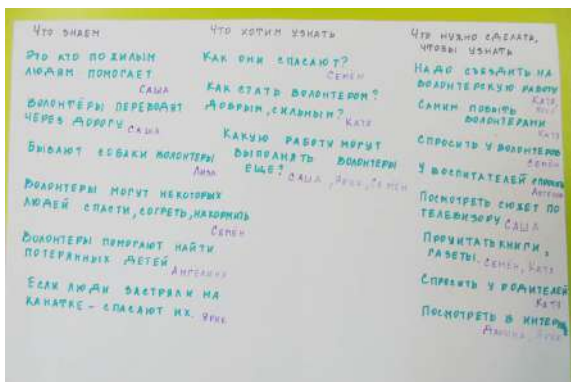 Что знаем
Это кто пожилым
людям помогает
Саша
Волонтёры переводят
через дорогу Саша
Бывают собаки волонтеры
Лиза
Волонтеры могут некоторых
людей спасти, согреть, накормить
Семен
Волонтеры помогают найти
потерянных детей
Ангелина
Если люди застряли на
канатке - спасают их. Ярик
Что хотим узнать
Как они спасают?
Семён
Как стать волонтером?
добрым, сильным? Катя
Какую работу могут
выполнять волонтеры
еще? Саша, Ярик, Семен
Что нужно сделать,
чтобы узнать
Надо съездить на
волонтерскую работу
Катя,
Самим побыть
волонтерами
Катя
Спросить у волонтеров
Семён
У воспитателей спросить
Ангелина
Посмотреть сюжет по
телевизору Саша
Прочитать книги,
газеты. Семен, Катя
Спросить у родителей
Катя
Посмотреть в